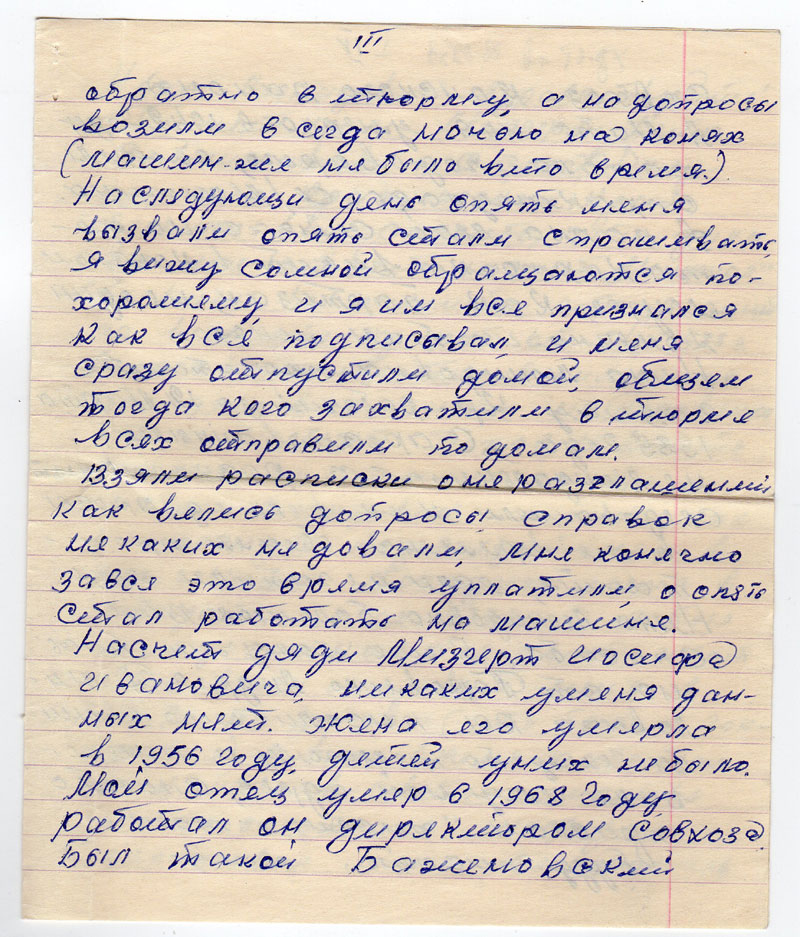 III
обратно в тюрьму, а на допросы
возили всегда ночью на конях
(машин-же не было в то время.)
Наследующи день опять меня
вызвали опять стали спрашивать,
я вижу сомной обращаются по-
хорошему, и я им вся признался
как вся, подписывал, и меня
сразу отпустили домой, общем
тогда кого захватили в тюрме
всях отправили по домам.
Взяли расписки о неразглашении
как вялись допросы, справок
некаких недовали, мне конечно
зався это время уплатили, о опять
стал работать на машине.
Насчет дяди Мизгерт Иосифа
Ивановича, никаких уменя дан-
ных нет. жена его умерла
в 1956 году, детей униx не было.
Мой отец умер в 1968 году
работал он директором совхоза.
Был такой Баженовский